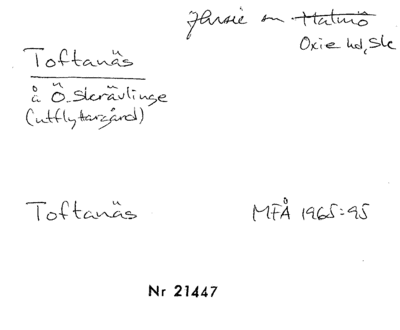 Jhrsie sn Malmö
Oxie hd, Sk
Toftanäs
å Ö. Skrävlinge
(utflyttargård)
Toftanäs MFÅ 1965:95
Nr 21447